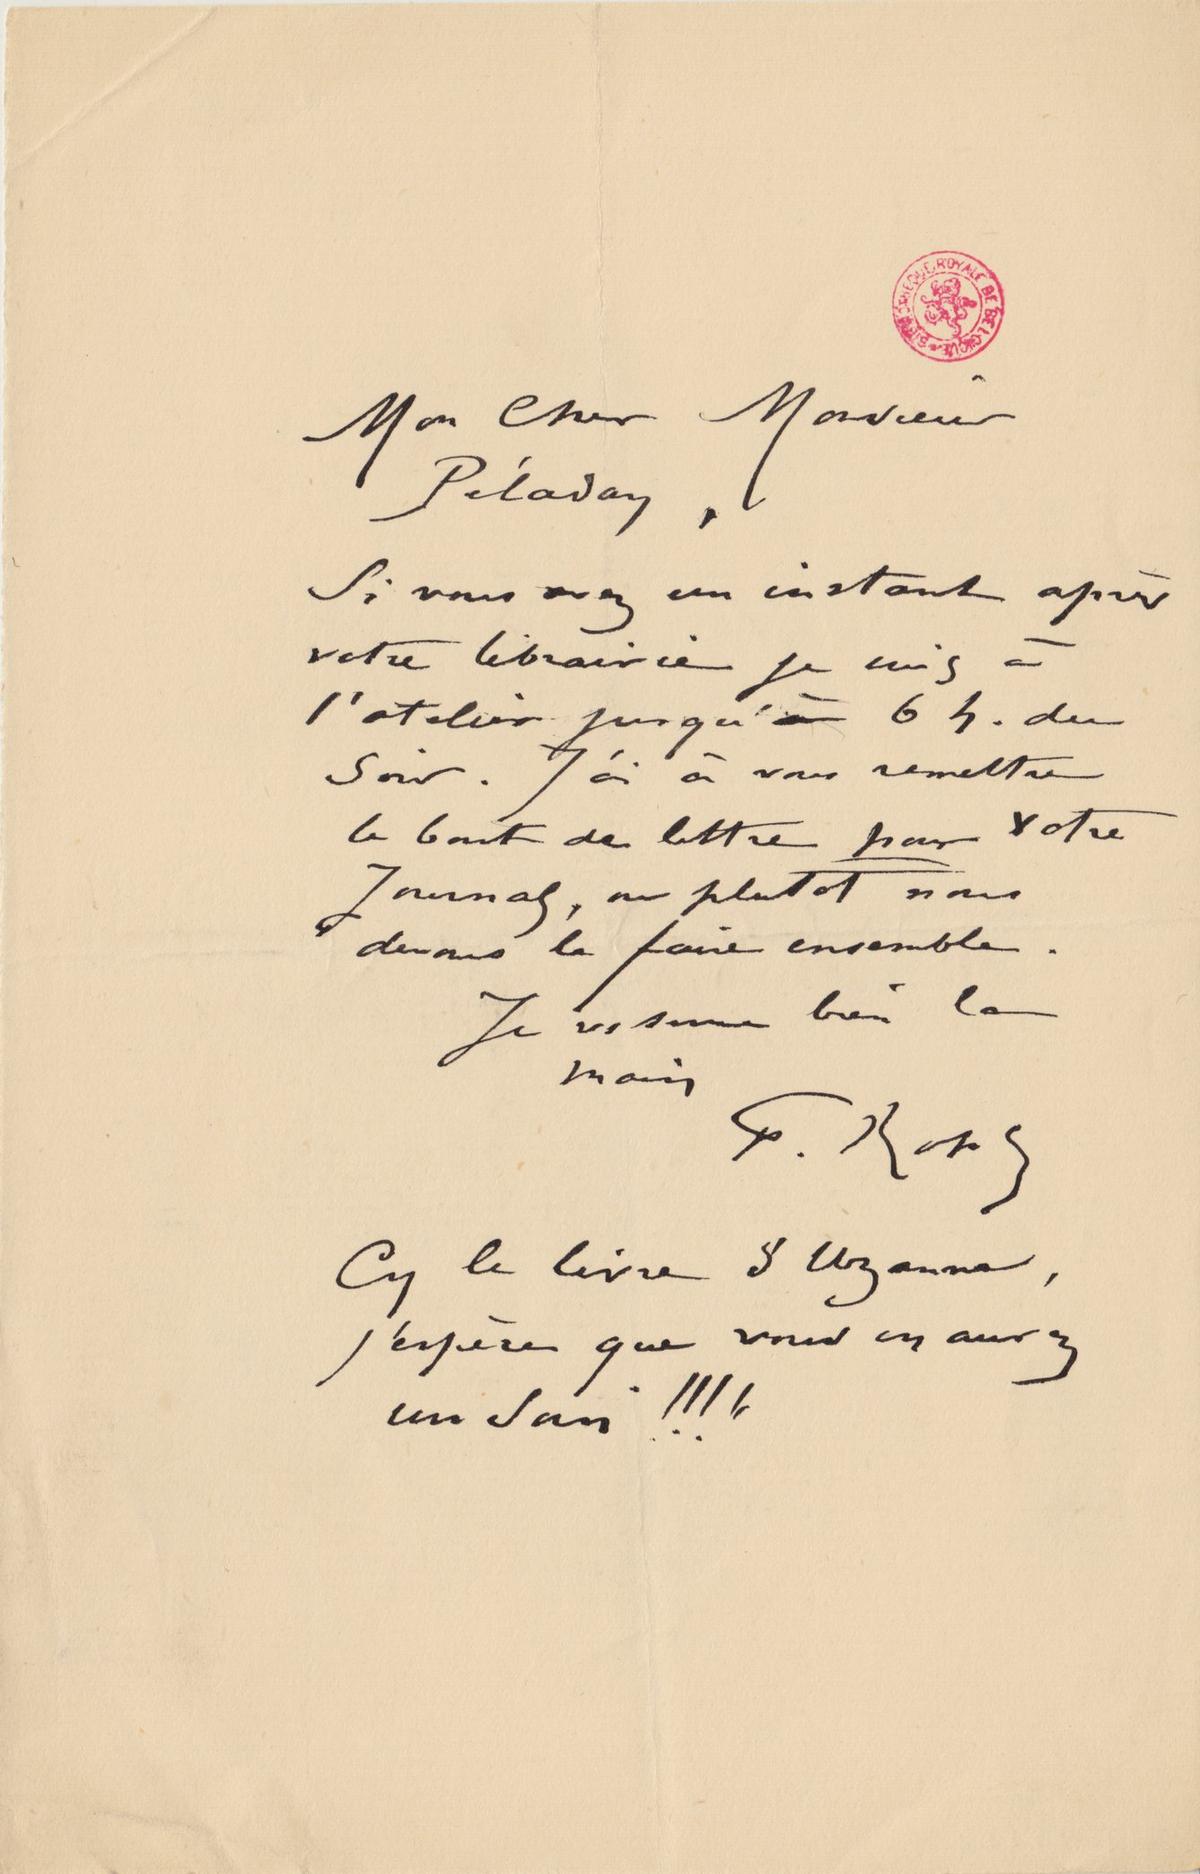 BIBLIOTHEQUE ROYALE DE BELGIQUE
Mon Cher Monsieur
Péladan,
Si vous avez un instant après
votre librairie je suis à
l'atelier jusqu'à 6 h. du
Soir. J'ai à vous remettre
le bout de lettre pour votre
Journal, ou plutot nous
devons le faire ensemble.
Je vs serre bien la
main
F. Rops
Cy le livre d'Uzanne,
j'espère que vous en aurez
un Soin !!!!